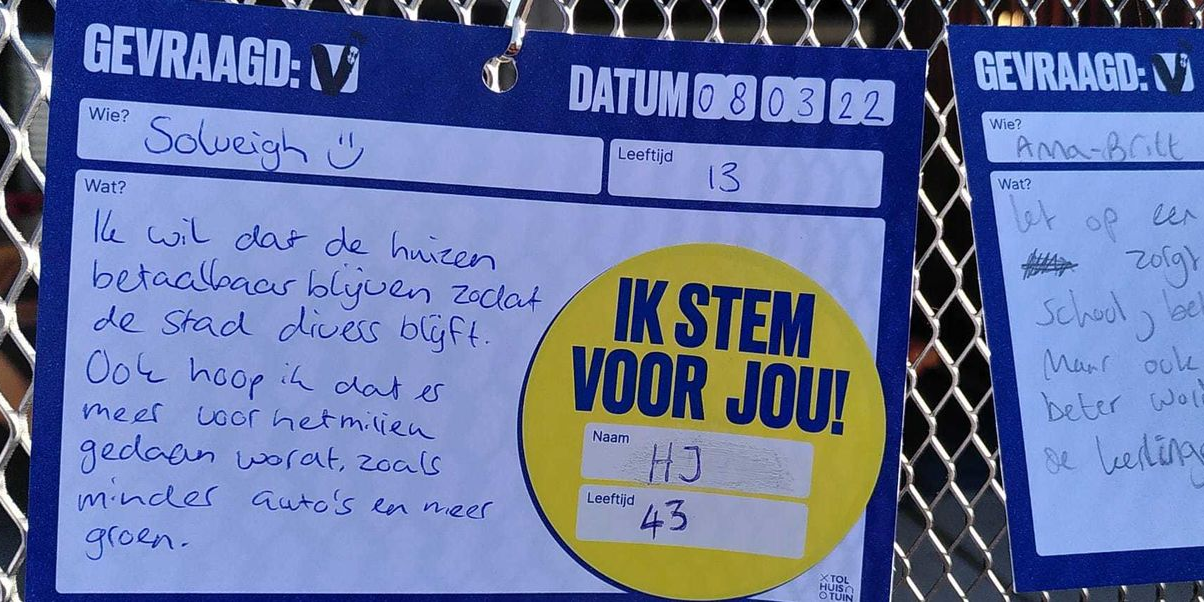 GEVRAAGD:
DATUM 08 03 22
Wie?
Solveigh :)
Leeftijd
13
Wat?
Ik wil dat de huizen
betaalbaar blijven zodat
de stad divers blijft.
Ook hoop ik dat er
meer voor het milieu
gedaan wordt, zoals
minder auto's en meer
groen.
IK STEM
VOOR JOU!
Naam
HJ
Leeftijd
43
XTOL
HUIS
TUIN
GEVRAAGD:
Wie?
Anna-Britt
Wat?
let op een
zorgt
school, be
Maar ook
beter wor
de leerlinge